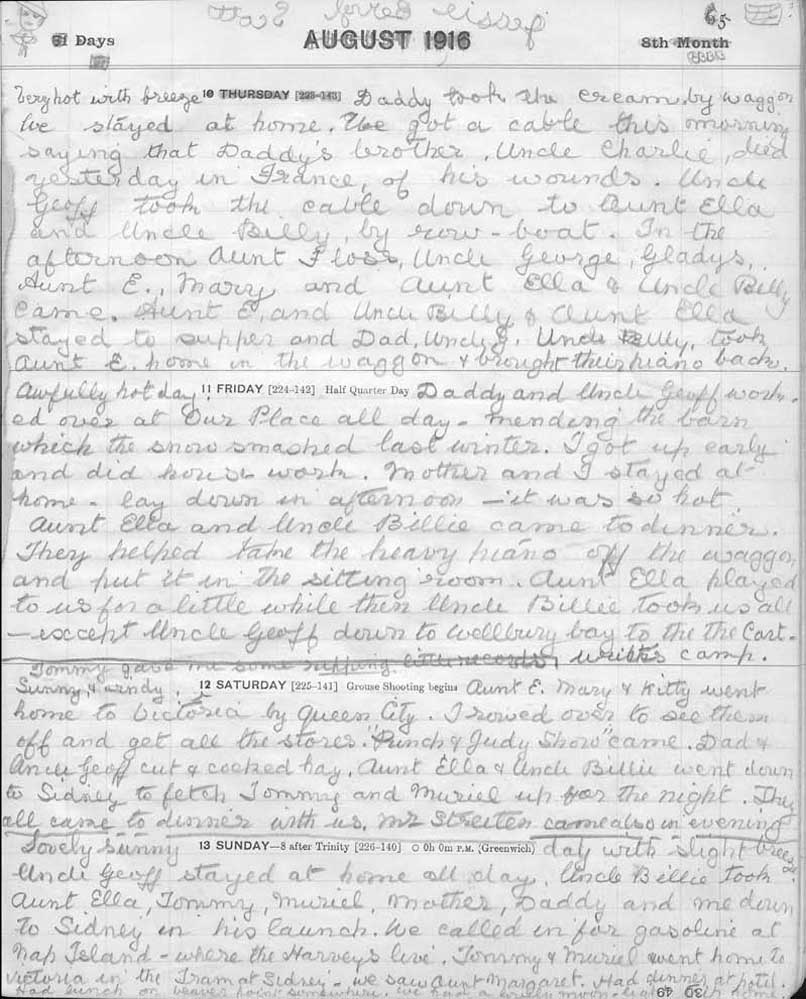 65
31 Days AUGUST 1916 8th Month
Very hot with breeze 10 THURSDAY [223-143] Daddy took the cream by waggon
We stayed at home. We got a cable this morning
saying that Daddy's brother, Uncle Charlie, died
yesterday in France, of his wounds. Uncle
Geoff took the cable down to Aunt Ella
and Uncle Billy, by row-boat. In the
afternoon Aunt Floss, Uncle George, Gladys,
Aunt E., Mary and Aunt Ella & Uncle Billy
came. Aunt E, and Uncle Billy & Aunt Ella
stayed to supper and Dad, Uncle G. Uncle Billy, took
Aunt E. home in the waggon & brought their piano back.
Awfully hot day! 11 FRIDAY [224-142] Half Quarter Day Daddy and Uncle Geoff work-
ed over at Our Place all day - mending the barn
which the snow smashed last winter. I got up early
and did house work. Mother and I stayed at
home - lay down in afternoon - it was so hot.
Aunt Ella and Uncle Billie came to dinner.
They helped take the heavy piano off the waggon
and put it in the sitting room. Aunt Ella played
to us for a little while then Uncle Billie took us all
- except Uncle Geoff down to Wellbury bay to the the Cart-
wright's camp.
Tommy gave me some ripping little records!
Sunny & windy, 12 SATURDAY [225-141] Grouse Shooting begins Aunt E. Mary & Kitty went
home to Victoria by Queen City. I rowed over to see them
off and get all the stores. "Punch & Judy Show" came. Dad &
Uncle Geoff cut & cocked hay. Aunt Ella & Uncle Billie went down
to Sidney to fetch Tommy and Muriel up for the night. They
all came to dinner with us. Mr Streiten came also in evening
Lovely sunny 13 SUNDAY—8 after Trinity [226-140] 0h 0m P.M. (Greenwich) day with slight breeze
Uncle Geoff stayed at home all day. Uncle Billie took
Aunt Ella, Tommy, Muriel, Mother, Daddy and me down
to Sidney in his launch. We called in for gasoline at
Nap Island - where the Harveys live. Tommy & Muriel went home to
Victoria in the Tram at Sidney - we saw Aunt Margaret. Had dinner at hotel.
Had lunch on beaver point somewhere. We had a lovely